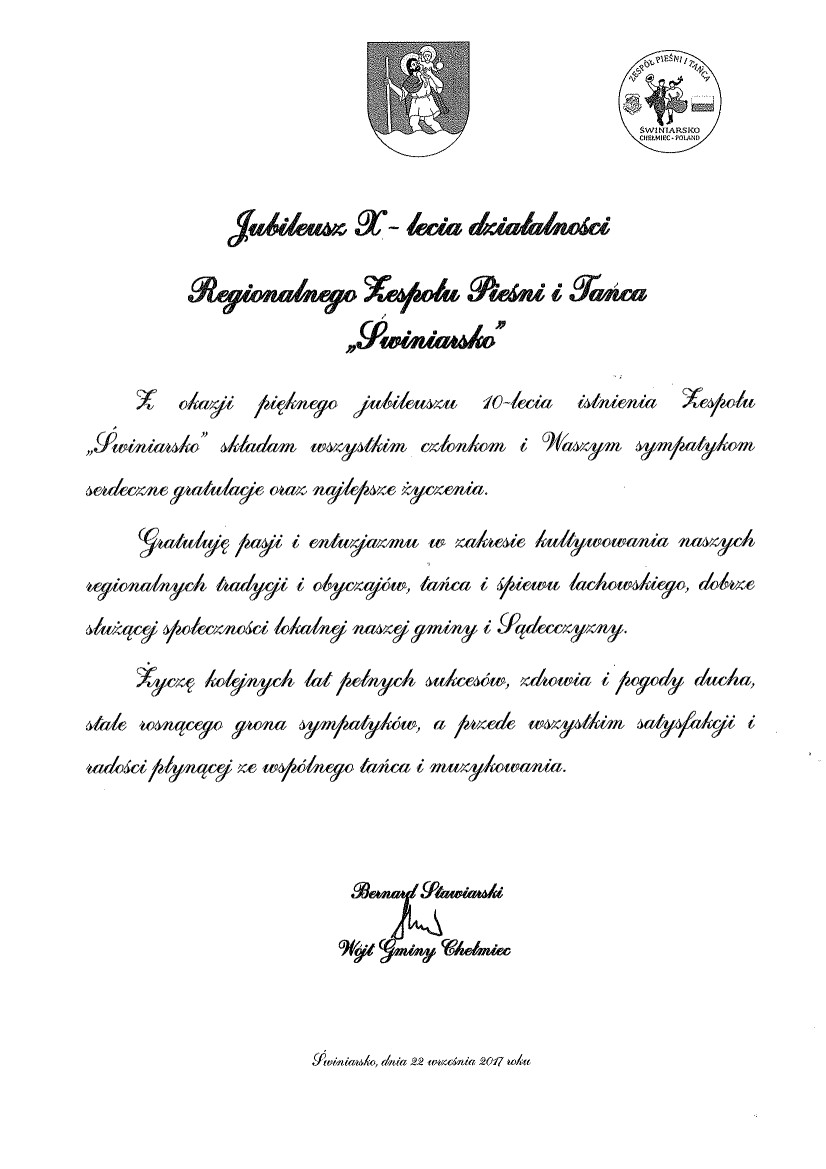 ZESPÓŁ PIEŚNI I TAŃCA
ŚWINIARSKO
CHEŁMIEC - POLAND
Jubileusz X - lecia działalności
Regionalnego Zespołu Pieśni i Tańca
„Świniarsko”
Z okazji pięknego jubileuszu 10-lecia istnienia Zespołu
„Świniarsko” składam wszystkim członkom i Waszym sympatykom
serdeczne gratulacje oraz najlepsze życzenia.
Gratuluję pasji i entuzjazmu w zakresie kultywowania naszych
regionalnych tradycji i obyczajów, tańca i śpiewu lachowskiego, dobrze
służącej społeczności lokalnej naszej gminy i Sądecczyzny.
Życzę kolejnych lat pełnych sukcesów, zdrowia i pogody ducha,
stale rosnącego grona sympatyków, a przede wszystkim satysfakcji i
radości płynącej ze wspólnego tańca i muzykowania.
Bernard Stawiarski
Wójt Gminy Chełmiec
Świniarsko, dnia 22 września 2017 roku